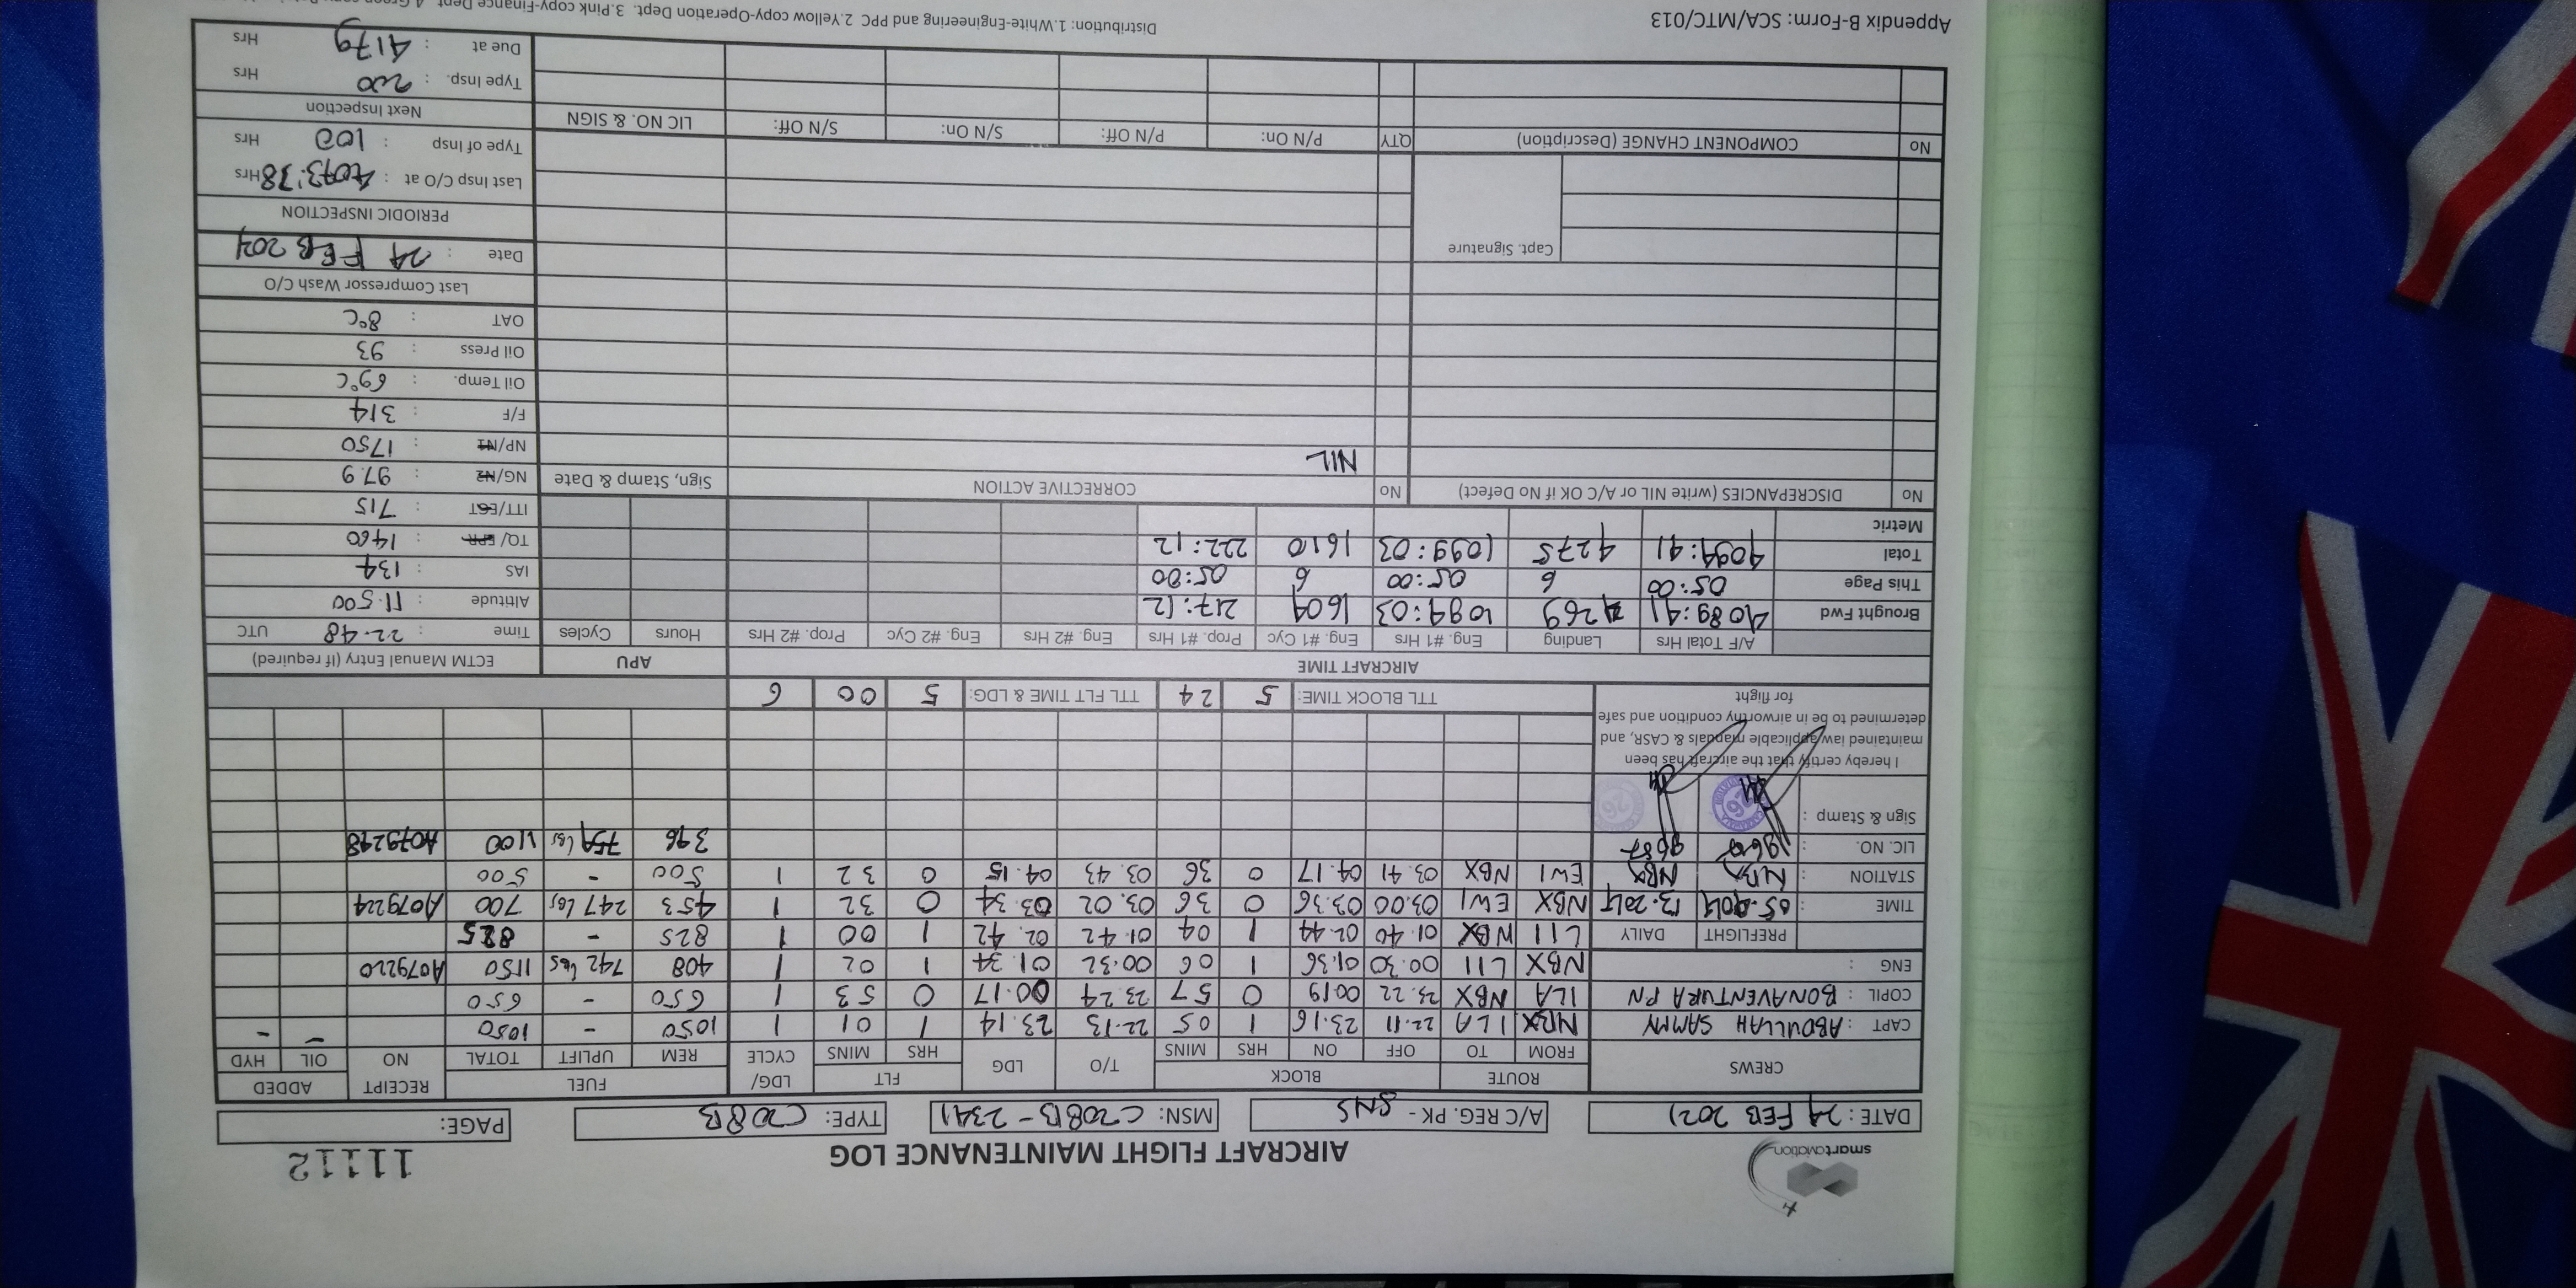 smartaviation
AIRCRAFT FLIGHT MAINTENANCE LOG
11112
DATE: 24 FEB 2021 A/C REG. PK - SNS MSN: C208B-2341 TYPE: C208B PAGE:
CREWS ROUTE BLOCK T/O LDG FLT LDG/ CYCLE FUEL RECEIPT NO ADDED
FROM TO OFF ON HRS MINS HRS MINS REM UPLIFT TOTAL OIL HYD
CAPT : ABDULLAH SAMMY NBX ILA 22.11 23.16 1 05 22.13 23.14 1 01 1 1050 - 1050 - -
COPIL : BONAVENTURA PN ILA NBX 23.22 00.19 0 57 23.24 00.17 0 53 1 650 - 650
ENG : NBX LII 00.30 01.36 1 06 00.32 01.34 1 02 1 408 742 lbs 1150 A079220
PREFLIGHT DAILY LII NBX 01.40 02.44 1 04 01.42 02.42 1 00 1 825 - 825
TIME : NBX EWI 03.00 03.36 0 36 03.02 03.34 0 32 1 453 247 lbs 700 A079224
STATION : NBX NBX EWI NBX 03.41 04.17 0 36 03.43 04.15 0 32 1 500 - 500
LIC. NO. : 346 754 lbs 1100 A079248
Sign & Stamp :
I hereby certify that the aircraft has been
maintained iaw applicable manuals & CASR, and
determined to be in airworthy condition and safe
for flight
TTL BLOCK TIME: 5 24 TTL FLT TIME & LDG: 5 00 6
AIRCRAFT TIME APU ECTM Manual Entry (If required)
A/F Total Hrs Landing Eng. #1 Hrs Eng. #1 Cyc Prop. #1 Hrs Eng. #2 Hrs Eng. #2 Cyc Prop. #2 Hrs Hours Cycles Time : 22.48 UTC
Brought Fwd 4089:41 4269 1094:03 1604 217:12 Altitude : 11.500
This Page 05:00 6 05:00 6 05:00 IAS : 134
Total 4094:41 4275 1099:03 1610 222:12 TQ/EPR : 1460
Metric ITT/EGT : 715
No DISCREPANCIES (write NIL or A/C OK if No Defect) No CORRECTIVE ACTION Sign, Stamp & Date NG/N2 : 97.9
NIL NP/N1 : 1750
F/F : 314
Oil Temp. : 69°C
Oil Press : 93
OAT : 8°C
Last Compressor Wash C/O
Capt. Signature Date : 24 FEB 2021
PERIODIC INSPECTION
Last Insp C/O at : 4073:38 Hrs
No COMPONENT CHANGE (Description) QTY P/N On: P/N Off: S/N On: S/N Off: LIC NO. & SIGN Type of Insp : 100 Hrs
Next Inspection
Type Insp. : 200 Hrs
Due at : 4179 Hrs
Appendix B-Form: SCA/MTC/013 Distribution: 1.White-Engineering and PPC 2.Yellow copy-Operation Dept. 3.Pink copy-Finance Dept